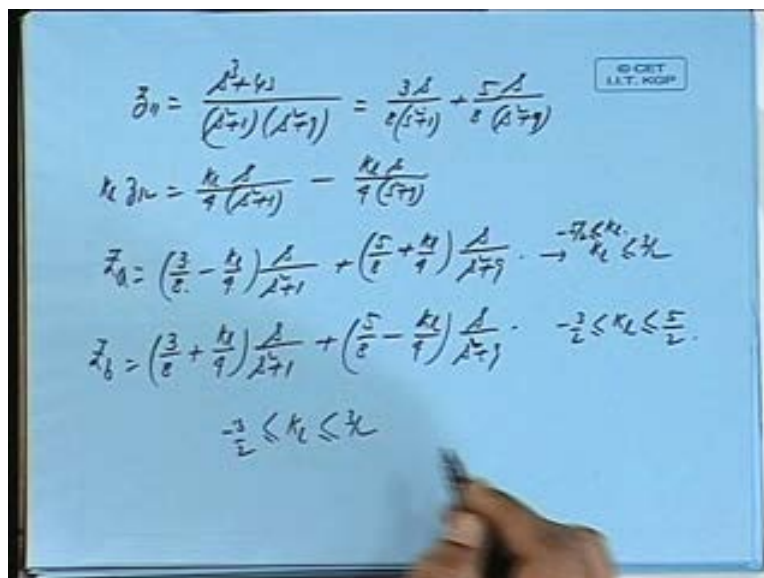 © CET
I.I.T. KGP
z₁₁ = (s³+4s)/((s²+1)(s²+9)) = 3s/(8(s²+1)) + 5s/(8(s²+9))
k₁z₁₂ = k₁s/(4(s²+1)) − k₁s/(4(s²+9))
Z_a = (3/8 − k₁/4) s/(s²+1) + (5/8 + k₁/4) s/(s²+9). → −5/2 ≤ k₁. k₁ ≤ 3/2
Z_b = (3/8 + k₁/4) s/(s²+1) + (5/8 − k₁/4) s/(s²+9). −3/2 ≤ k₁ ≤ 5/2.
−3/2 ≤ k₁ ≤ 3/2